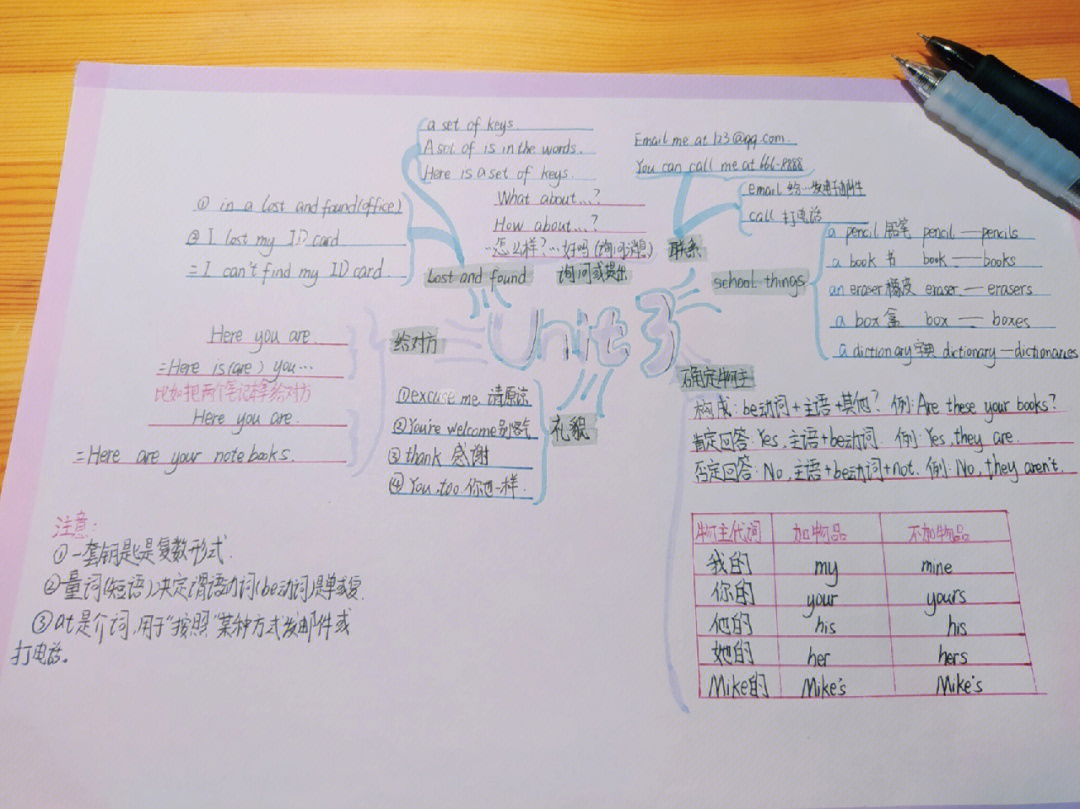 a set of keys.
A set of is in the words.
Here is a set of keys.
① in a lost and found(office)
② I lost my ID card
= I can't find my ID card.
Lost and found
What about...?
How about...?
…怎么样?…好吗(询问消息)
询问或提示
Email me at 123@qq.com
You can call me at 666-8888
email 给…发电子邮件
call 打电话
联系
school things
a pencil 铅笔 pencil — pencils
a book 书 book — books
an eraser 橡皮 eraser — erasers
a box 盒 box — boxes
a dictionary 字典 dictionary — dictionaries
Unit 3
给对方
Here you are.
=Here is(are) you…
比如把两个笔记本给对方
Here you are.
=Here are your notebooks.
①excuse me 请原谅
②You're welcome别客气
③thank 感谢
④You, too 你也一样.
礼貌
确定物主
构成: be动词+主语+其他? 例: Are these your books?
肯定回答: Yes, 主语+be动词. 例: Yes, they are.
否定回答: No, 主语+be动词+not. 例: No, they aren't.
物主代词 加物品 不加物品
我的 my mine
你的 your yours
他的 his his
她的 her hers
Mike的 Mike's Mike's
注意:
①一套钥匙是复数形式.
②量词(短语)决定谓语动词(be动词)是单或复.
③at是介词,用于"按照"某种方式发邮件或
打电话。